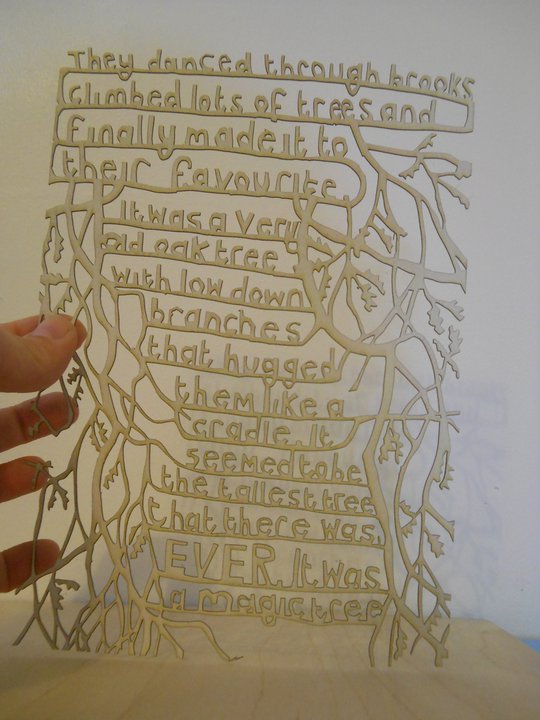 They danced through brooks
climbed lots of trees and
finally made it to
their favourite.
It was a very
old oak tree,
with low down
branches
that hugged
them like a
cradle. It
seemed to be
the tallest tree
that there was.
EVER. It was
a magic tree